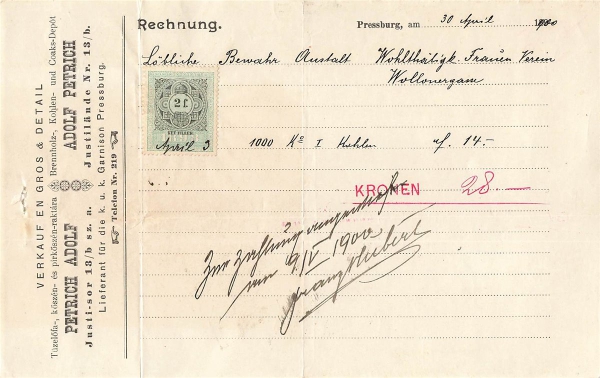 VERKAUF EN GROS & DETAIL
Tüzelőfa-, kőszén- és pirkőszén-raktára Brennholz-, Kohlen- und Coaks-Depôt
PETRICH ADOLF ADOLF PETRICH
Justi-sor 13/b sz. a. Justilände Nr. 13/b.
Lieferant für die k. u. k. Garnison Pressburg.
Telefon Nr. 219
Rechnung.
Pressburg, am 30 April 1900
Löbliche Bewahr Anstalt Wohlthätigk. Frauen Verein
2 f.
April 3
1000 Ko I Kohlen f. 14.-
KRONEN 28.—
Zur Zahlung angewiesen
9/IV 1900